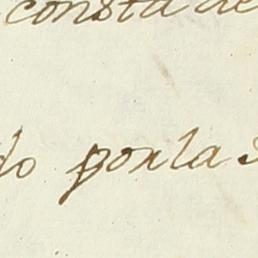 consta de
do por la